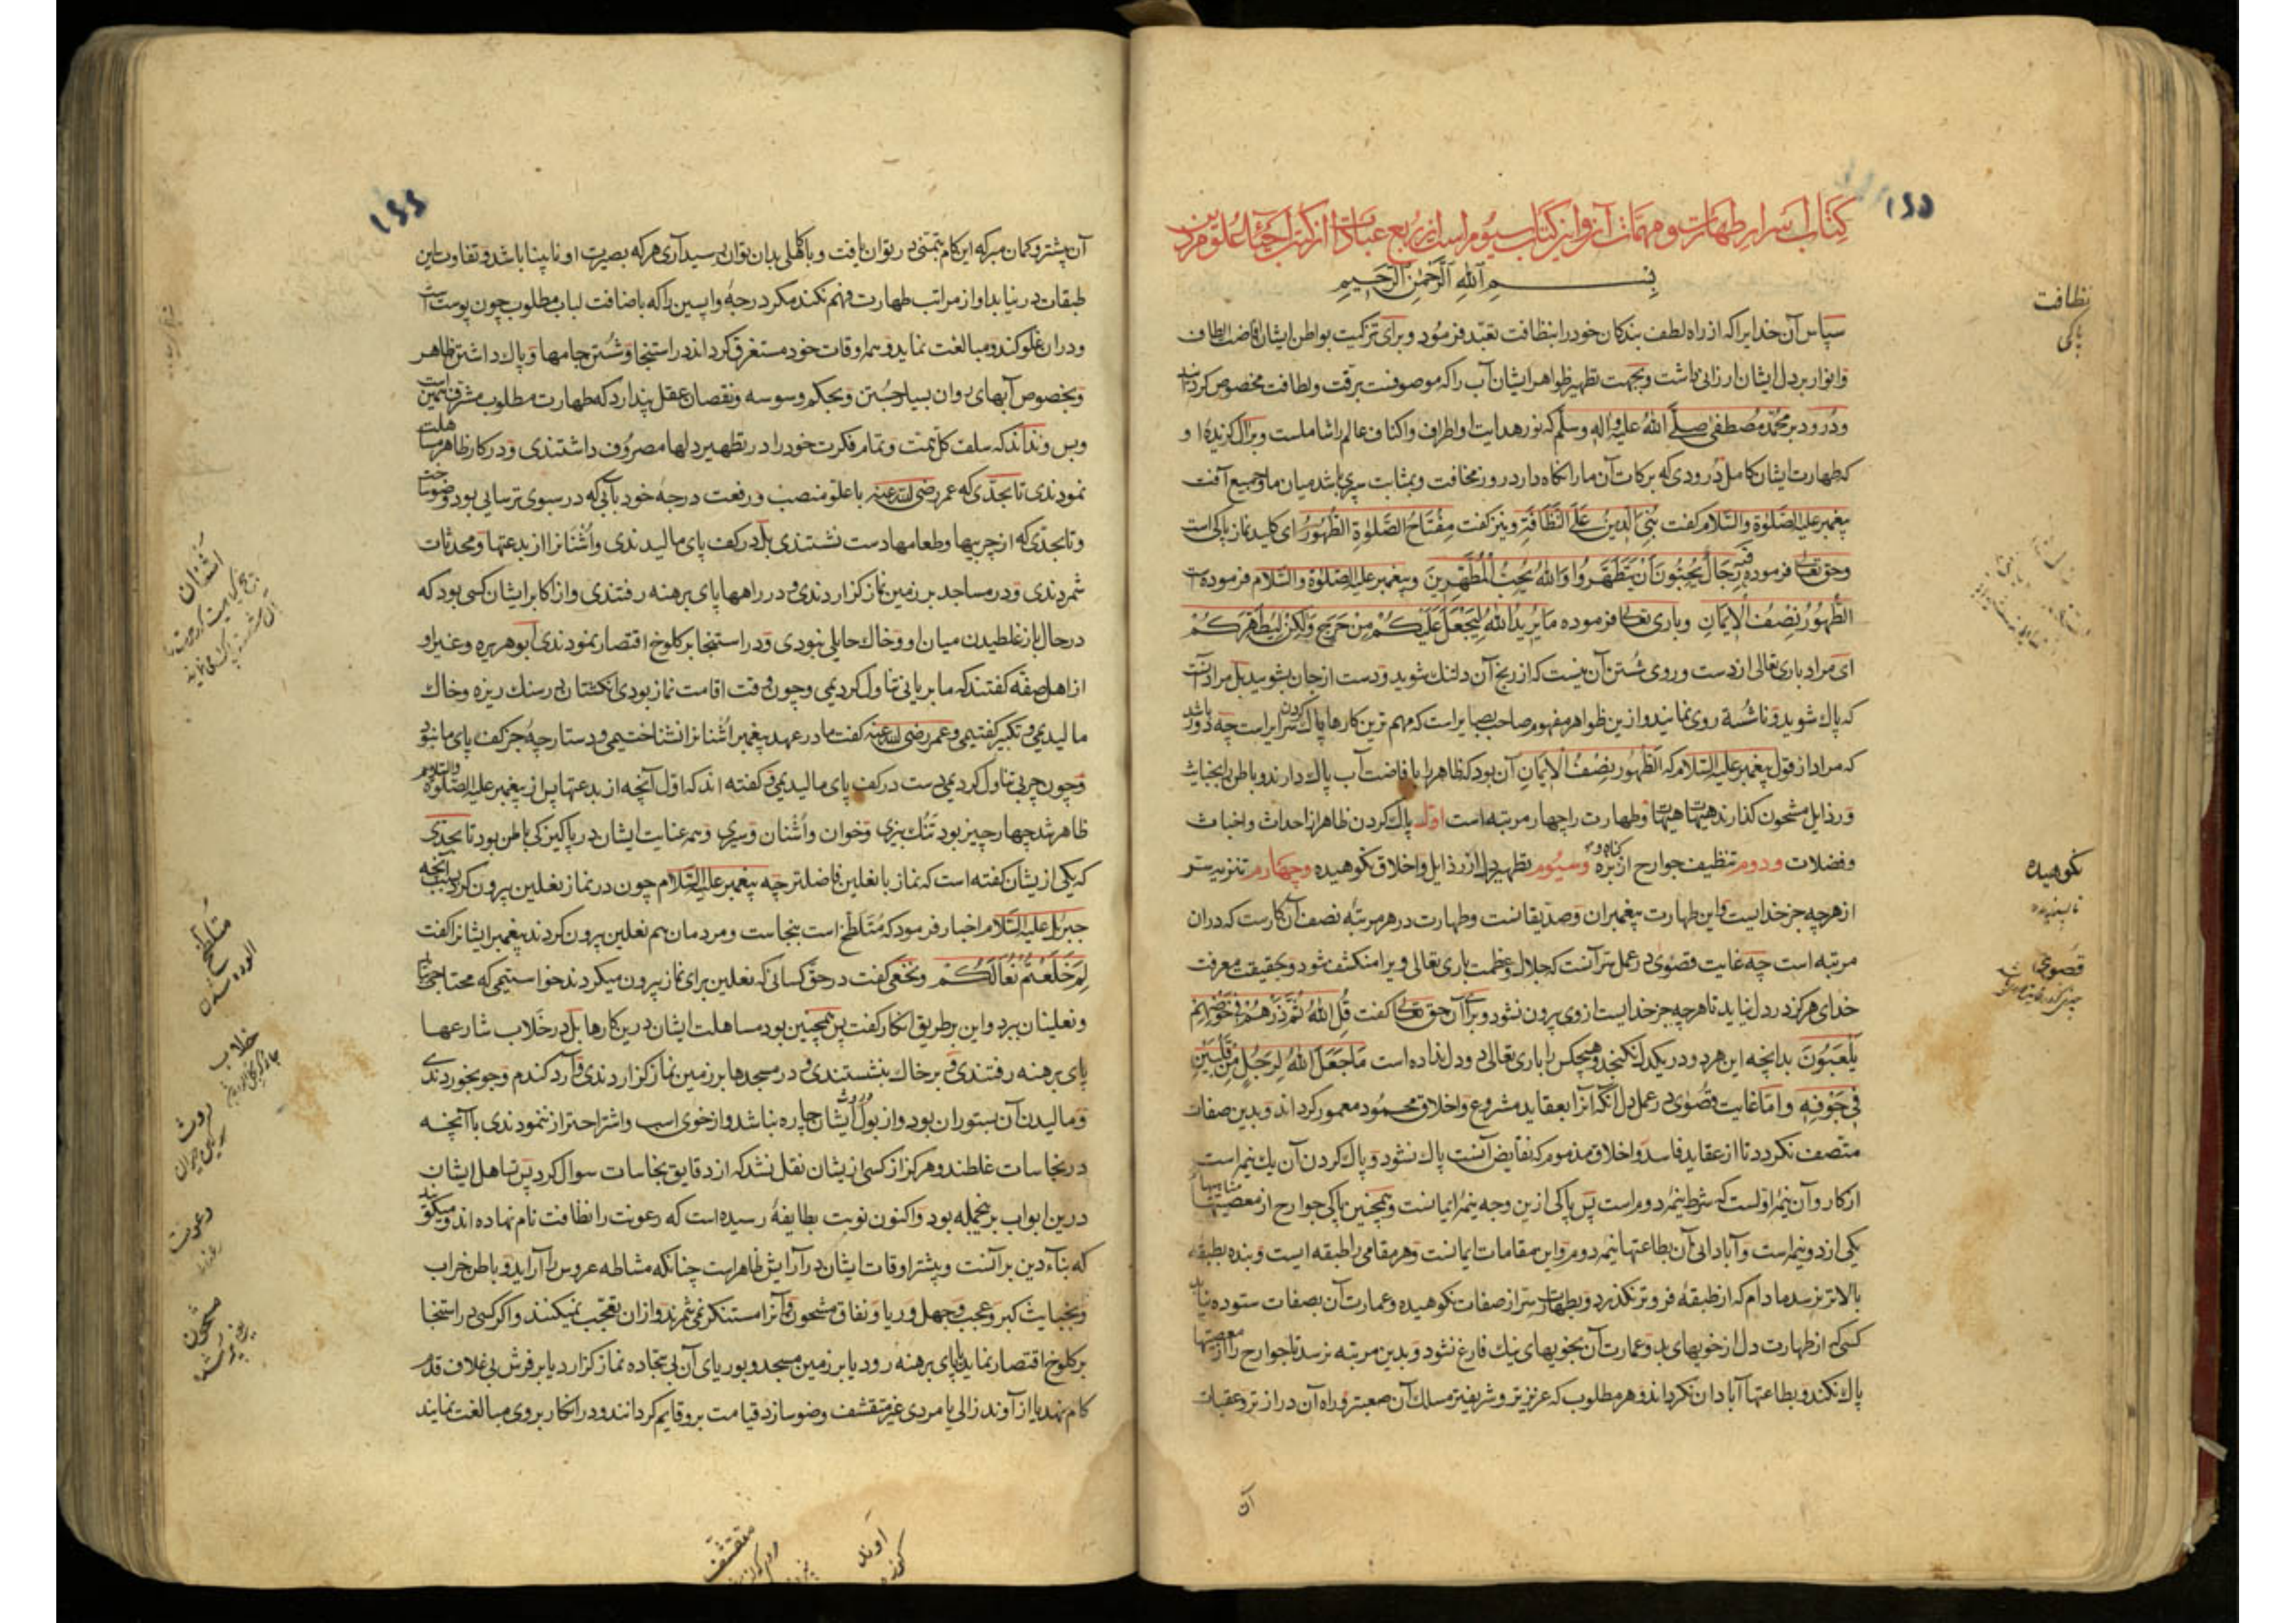 ۱۵۵
کتاب اسرار طهارت و مهمات آن و این کتاب سیوم است از ربع عبادات از کتب احیاء علوم دین
بسم الله الرحمن الرحیم
سپاس آن خدایرا که از راه لطف بندکان خود را بنظافت تعبد فرمود و برای تزکیت بواطن ایشان افاضت الطاف
و انوار بر دل ایشان ارزانی داشت و بجهت تطهیر ظواهر ایشان آب را که موصوفست برقت و لطافت مخصوص کردانید
و درود بر محمد مصطفی صلی الله علیه و اله و سلم که نور هدایت او اطراف و اکناف عالم را شاملست و بر آل کزیدۀ او
که طهارت ایشان کامل درودی که برکات آن ما را نکاه دارد در روز مخافت و بمثابت سپری باشد میان ما و جمیع آفت
پیغمبر علیه الصلوة والسلام کفت بنی الدین علی النظافة و نیز کفت مفتاح الصلوة الطهور ای کلید نماز پاکی است
و حق تعالی فرموده فیه رجال یحبون ان یتطهروا والله یحب المطهرین و پیغمبر علیه الصلوة والسلام فرموده است
الطهور نصف الایمان و باری تعالی فرموده ما یرید الله لیجعل علیکم من حرج ولکن لیطهرکم
ای مراد باری تعالی از دست و روی شستن آن نیست که از رنج آن دلتنک شوید و دست از جان بشویید بل مراد آنست
که پاک شوید و ناشسته روی نمانید و ازین ظواهر مفهوم صاحب بصایر است که مهم ترین کارها پاک کردن سرایر است چه دور باشد
که مراد از قول پیغمبر علیه السلام که الطهور نصف الایمان آن بود که ظاهر را بافاضت آب پاک دارند و باطن را بخبایث
و رذایل مشحون کذارند هیهات هیهات و طهارت را چهار مرتبه است اول پاک کردن ظاهر از احداث و اخباث
و فضلات و دوم تنظیف جوارح از بزه و کناه و سیوم تطهیر دل از رذایل و اخلاق نکوهیده و چهارم تنزیه سر
از هرچه جز خدایست و این طهارت پیغمبران و صدیقانست و طهارت در هر مرتبه نصف آن کارست که دران
مرتبه است چه غایت قصوی در عمل سر آنست که جلال و عظمت باری تعالی ویرا منکشف شود و بحقیقت معرفت
خدای هرکز در دل نیاید تا هرچه جز خدایست از وی بیرون نشود و برای آن حق تعالی کفت قل الله ثم ذرهم فی خوضهم
یلعبون بدانچه این هر دو در یکدل نکنجد و هیچکس را باری تعالی دو دل نداده است ما جعل الله لرجل من قلبین
فی جوفه و اما غایت قصوی در عمل دل آنکه آنرا بعقاید مشروع و اخلاق محمود معمور کرداند و بدین صفات
متصف نکردد تا از عقاید فاسد و اخلاق مذموم که نقایض آنست پاک نشود و پاک کردن آن یک نیمه است
از کار و آن نیمۀ اولست که شرط نیمۀ دوم است پس پاکی ازین وجه نیمۀ ایمانست و همچنین پاکی جوارح از معصیتها
یکی از دو نیمه است و آبادانی آن بطاعتها نیمۀ دوم و این مقامات ایمانست و هر مقامی را طبقه ایست و بنده بطبقه
بالاتر نرسد مادام که از طبقۀ فروتر نکذرد و بطهارت سر از صفات نکوهیده و عمارت آن بصفات ستوده نیاید
کسی که از طهارت دل از خویهای بد و عمارت آن بخویهای نیک فارغ نشود و بدین مرتبه نرسد تا جوارح را از معصیتها
پاک نکند و بطاعتها آبادان نکرداند و هر مطلوب که عزیزتر و شریفتر مسالک آن صعبتر و راه آن درازتر و عقبات
آن
نظافت
پاکی
نکوهیده
ناپسندیده
قصوی
۱۵۶
آن بیشتر و کمان مبر که این کام بتمنی در توان یافت و با کاهلی بدان توان رسید آری هرکه بصیرت او نابینا باشد و تفاوت این
طبقات در نیابد او از مراتب طهارت فهم نکند مکر درجۀ واپسین را که باضافت لباب مطلوب چون پوست است
و دران غلو کند و مبالغت نماید و همه اوقات خود مستغرق کرداند در استنجا و شستن جامها و پاک داشتن ظاهر
و بخصوص آبهای روان بسیار جستن و بحکم وسوسه و نقصان عقل پندارد که طهارت مطلوب مشرف همین است
و بس و نداند که سلف کل همت و تمام فکرت خود را در تطهیر دلها مصروف داشتندی و در کار ظاهر مساهلت
نمودندی تا بحدی که عمر رضی الله عنه با علو منصب و رفعت درجۀ خود بآبی که در سبوی ترسایی بود وضو ساخت
و تا بحدی که از چربیها و طعامها دست نشستندی بل در کف پای مالیدندی و اشنان را از بدعتها و محدثات
شمردندی و در مساجد بر زمین نماز کزاردندی و در راهها پای برهنه رفتندی و از اکابر ایشان کسی بود که
در حال باز غلطیدن میان او و خاک حایلی نبودی و در استنجا بر کلوخ اقتصار نمودندی ابو هریره و غیر او
از اهل صفه کفتند که ما بریانی تناول کردیمی و چون وقت اقامت نماز بودی انکشتان در سنک ریزه و خاک
مالیدیمی و تکبیر کفتیمی و عمر رضی الله عنه کفت ما در عهد پیغمبر اشنان را نشناختیمی و دستارچۀ جز کف پای ما نبود
و چون چربی تناول کردیمی دست در کف پای مالیدیمی و کفته اند که اول آنچه از بدعتها پس از پیغمبر علیه الصلوة والسلام
ظاهر شد چهار چیز بود تنک بیزی و خوان و اشنان و سیری و همه عنایت ایشان در پاکیزکی باطن بود تا بحدی
که یکی ازیشان کفته است که نماز با نعلین فاضلتر چه پیغمبر علیه السلام چون در نماز نعلین بیرون کرد بسبب آنچه
جبریل علیه السلام اخبار فرمود که متلطخ است بنجاست و مردمان هم نعلین بیرون کردند پیغمبر ایشانرا کفت
لم خلعتم نعالکم و نخعی کفت در حق کسانی که نعلین برای نماز بیرون میکردند خواستیمی که محتاجی بیامدی
و نعلینان ببرد و این بر طریق انکار کفت پس همچنین بود مساهلت ایشان درین کارها بل در خلاب شارعها
پای برهنه رفتندی و بر خاک بنشستندی و در مسجدها بر زمین نماز کزاردندی و آرد کندم و جو بخوردندی
و مالیدن آن بستوران بود و از بول و روث ایشان چاره نباشد و از خوی اسب و اشتر احتراز ننمودندی با آنچه
در نجاسات غلطند و هرکز از کسی ازیشان نقل نشد که از دقایق نجاسات سوال کرد پس تساهل ایشان
درین ابواب برین جمله بود و اکنون نوبت بطایفۀ رسیده است که رعونت را نظافت نام نهاده اند و میکویند
که بناء دین بر آنست و بیشتر اوقات ایشان در آرایش ظاهر است چنانکه مشاطه عروس را آراید و باطن خراب
و بخبایث کبر و عجب و جهل و ریا و نفاق مشحون و آنرا مستنکر نمی شمرند و ازان تعجب نمیکنند و اکر کسی در استنجا
بر کلوخ اقتصار نماید یا پای برهنه رود یا بر زمین مسجد و بوریای آن بی سجاده نماز کزارد یا بر فرش بی غلاف قدم
کام نهد یا از آوند زالی یا مردی غیر متقشف وضو سازد قیامت برو قایم کردانند و در انکار بر وی مبالغت نمایند
اشنان
متلطخ
آلوده شدن
خلاب
روث
سرکین حیوان
رعونت
مشحون
پر کرده شده
متقشف
آوند
کوزه